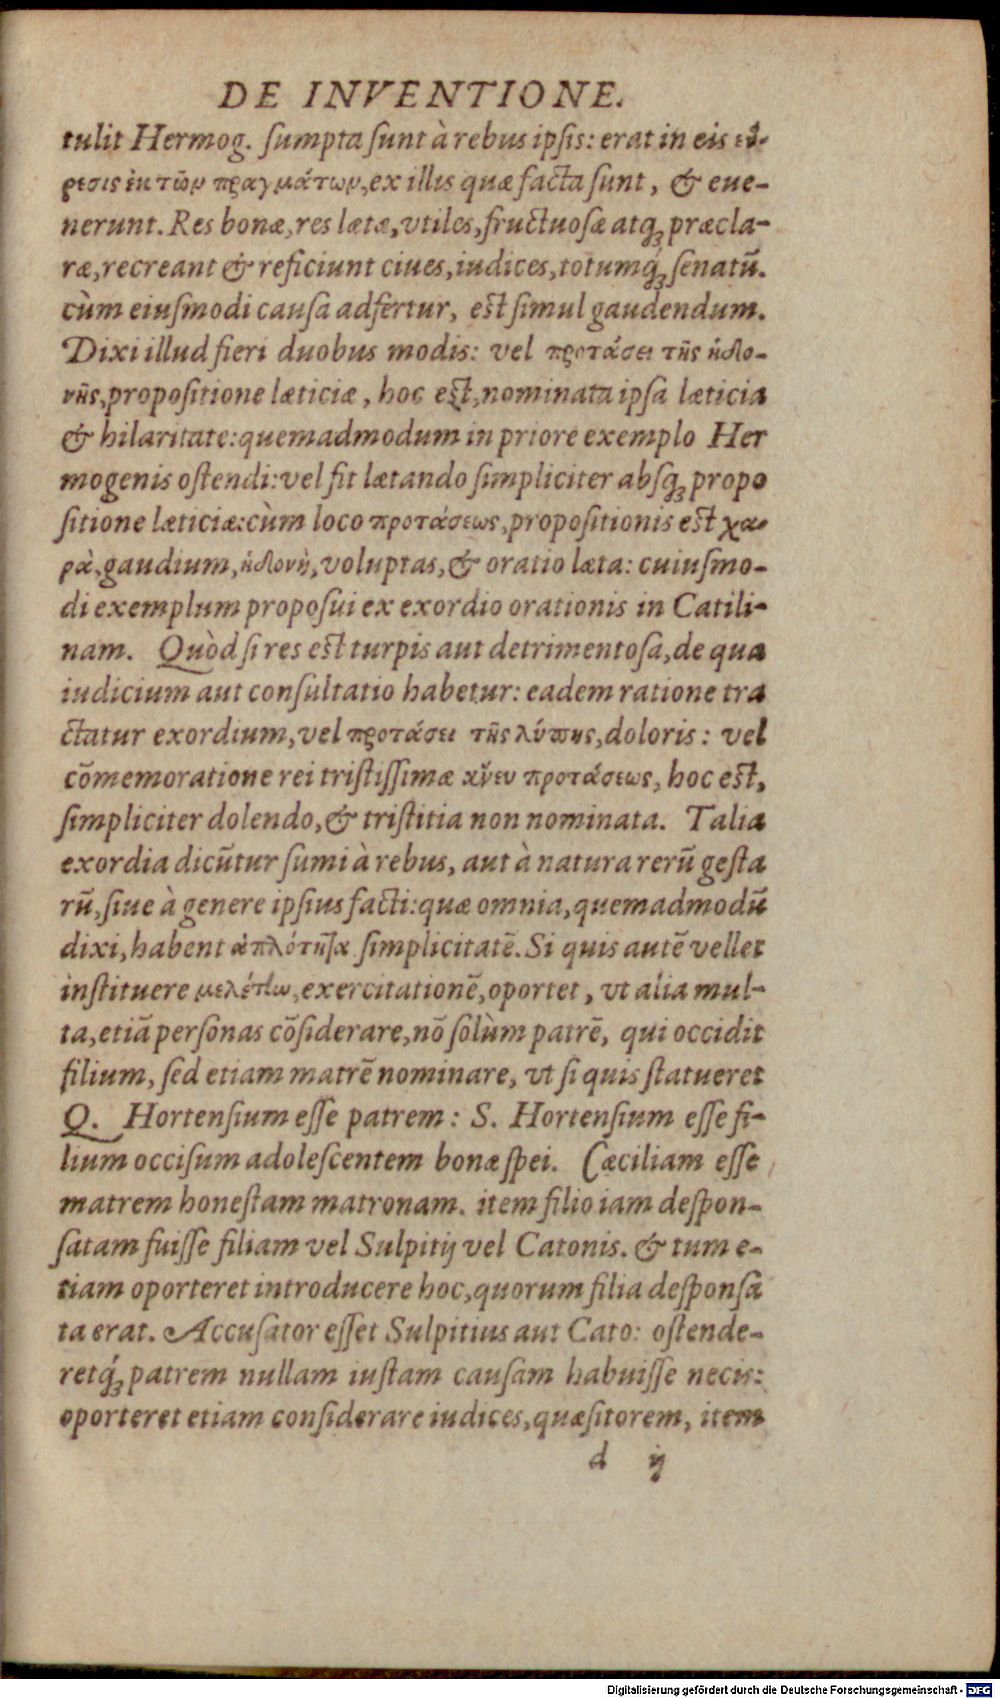 DE INVENTIONE.
tulit Hermog. sumpta sunt à rebus ipsis: erat in eis εὕ-
ρεσις ἐκ τῶν πραγμάτων, ex illis quæ facta sunt, & eue-
nerunt. Res bonæ, res lætæ, vtiles, fructuosæ atq; præcla-
ræ, recreant & reficiunt ciues, iudices, totumq́; senatū.
cùm eiusmodi causa adfertur, est simul gaudendum.
Dixi illud fieri duobus modis: vel προτάσει τῆς ἡδο-
νῆς, propositione læticiæ, hoc est, nominata ipsa læticia
& hilaritate: quemadmodum in priore exemplo Her
mogenis ostendi: vel fit lætando simpliciter absq; propo
sitione læticiæ: cùm loco προτάσεως, propositionis est χα-
ρὰ, gaudium, ἡδονὴ, voluptas, & oratio læta: cuiusmo-
di exemplum proposui ex exordio orationis in Catili-
nam. Quòd si res est turpis aut detrimentosa, de qua
iudicium aut consultatio habetur: eadem ratione tra
ctatur exordium, vel προτάσει τῆς λύπης, doloris: vel
cōmemoratione rei tristissimæ ἄνευ προτάσεως, hoc est,
simpliciter dolendo, & tristitia non nominata. Talia
exordia dicūtur sumi à rebus, aut à natura rerū gesta
rū, siue à genere ipsius facti: quæ omnia, quemadmodū
dixi, habent ἁπλότητα simplicitatē. Si quis autē vellet
instituere μελέτην, exercitationē, oportet, vt alia mul-
ta, etiā personas cōsiderare, nō solùm patrē, qui occidit
filium, sed etiam matrē nominare, vt si quis statueret
Q. Hortensium esse patrem: S. Hortensium esse fi-
lium occisum adolescentem bonæ spei. Cæciliam esse
matrem honestam matronam. item filio iam despon-
satam fuisse filiam vel Sulpitij vel Catonis. & tum e-
tiam oporteret introducere hoc, quorum filia desponsa
ta erat. Accusator esset Sulpitius aut Cato: ostende-
retq́; patrem nullam iustam causam habuisse necis:
oporteret etiam considerare iudices, quæsitorem, item
d ij
Digitalisierung gefördert durch die Deutsche Forschungsgemeinschaft - DFG